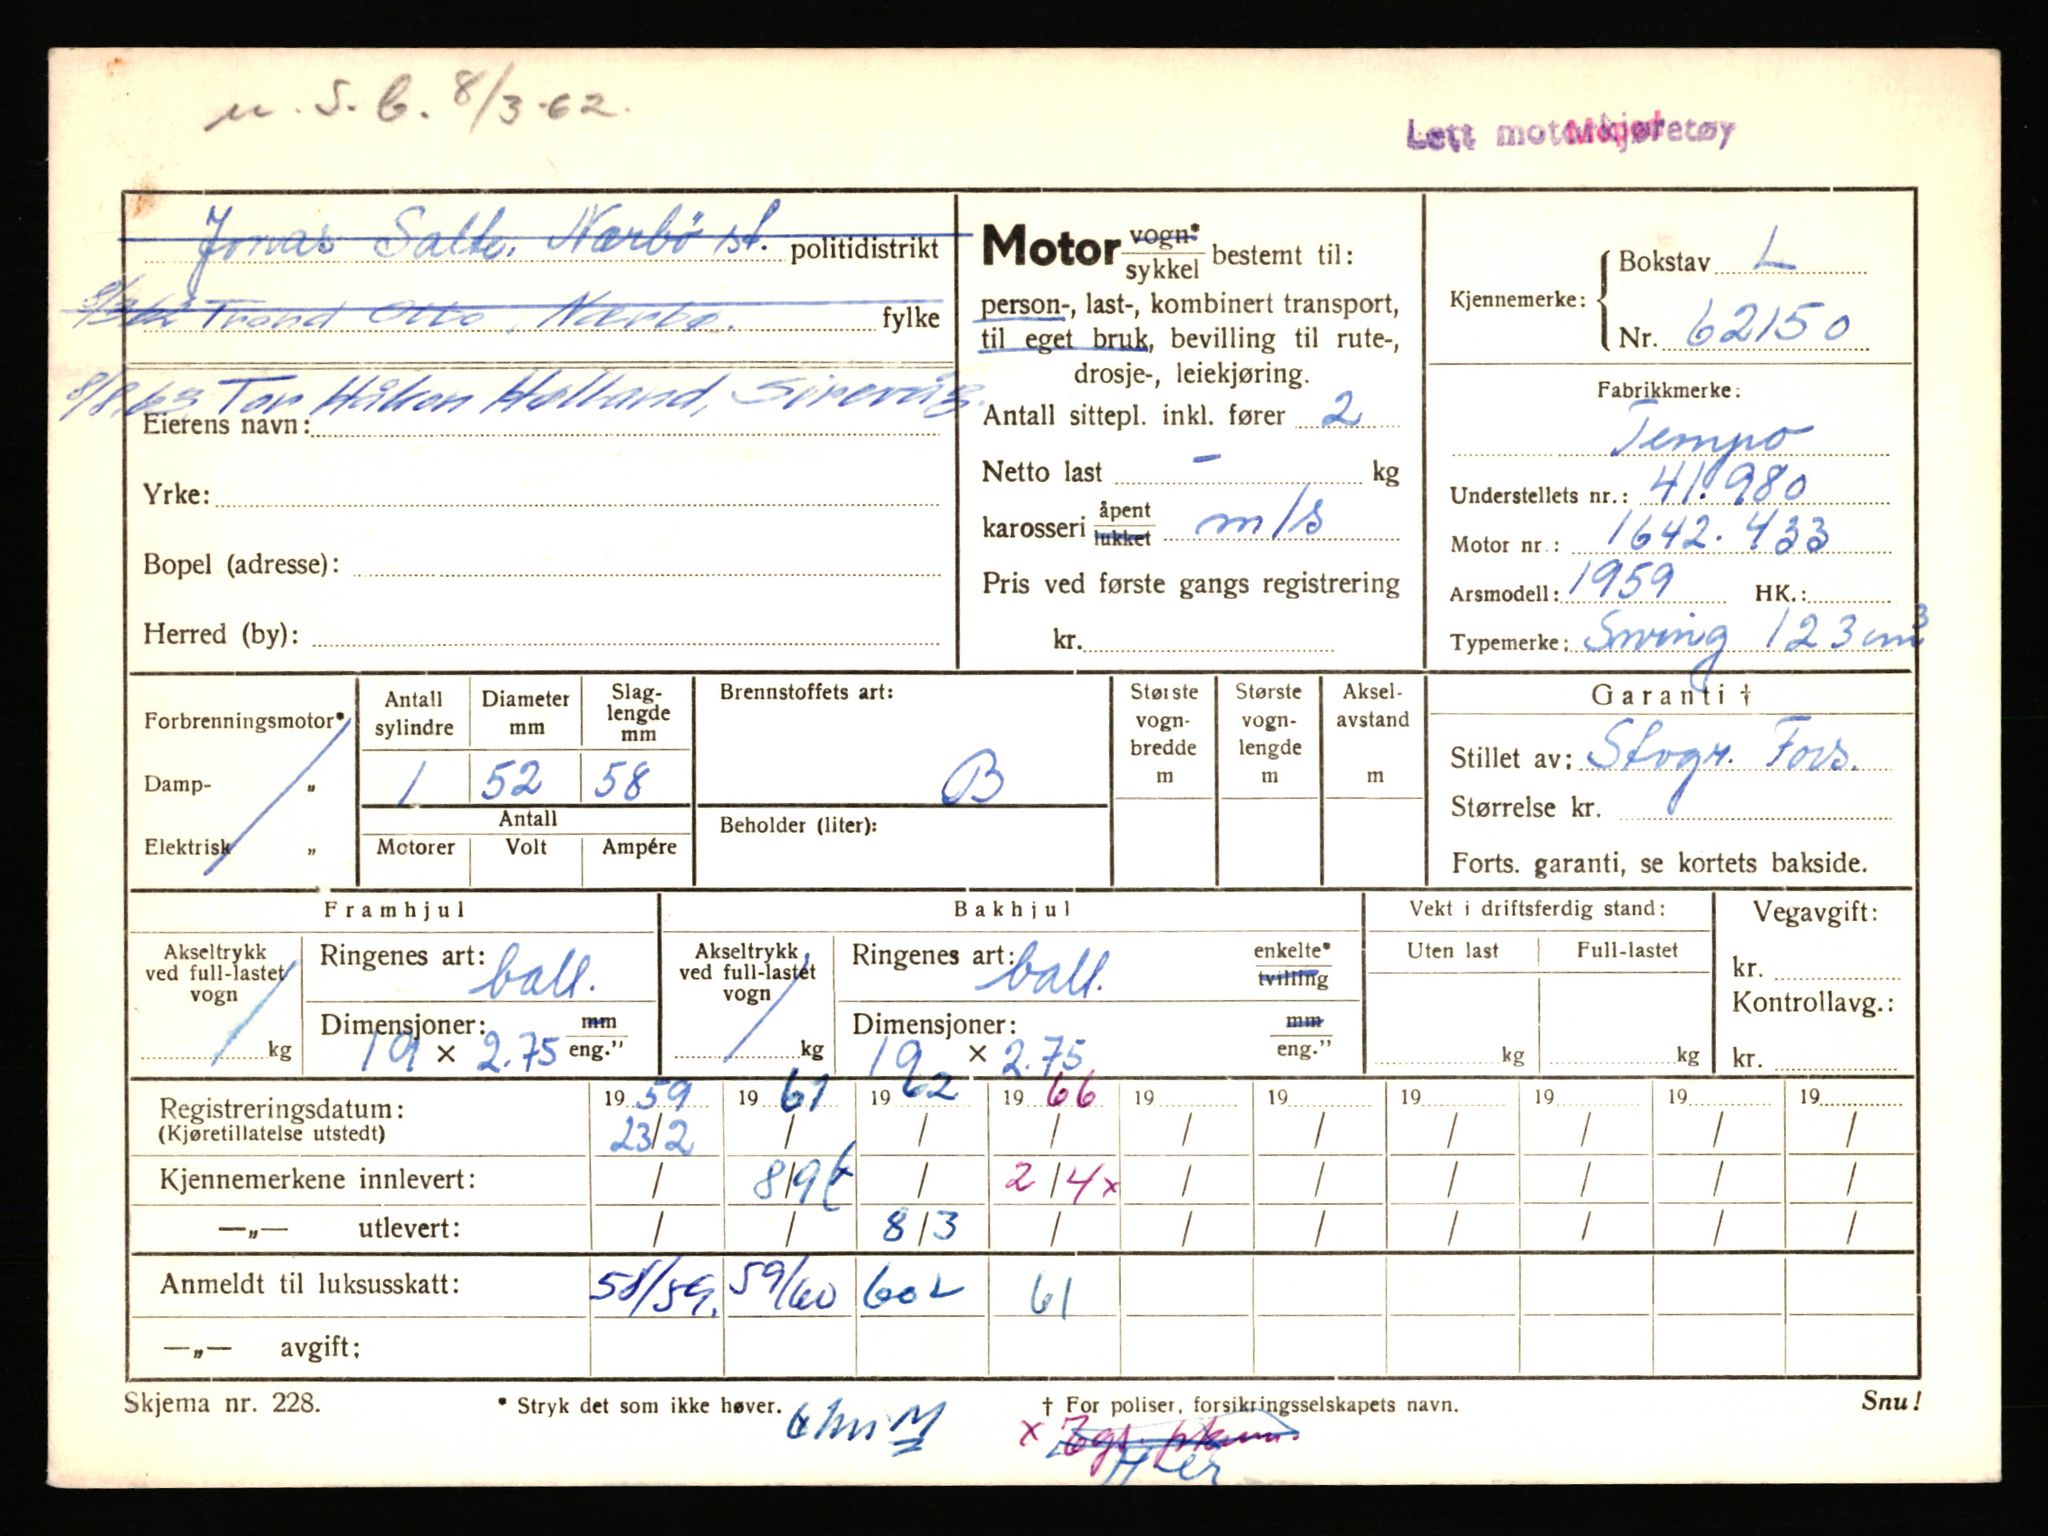 u. S. b. 8/3-62.
Lett motorkjøretøy
Jonas Salte, Nærbö st. politidistrikt
Trond Otto, Nærbø. fylke
8/8 63 Tor Håkon Holland, Sirevåg.
Eierens navn:
Yrke:
Bopel (adresse):
Herred (by):
Motor vogn* sykkel bestemt til:
person-, last-, kombinert transport,
til eget bruk, bevilling til rute-,
drosje-, leiekjøring.
Antall sittepl. inkl. fører 2
Netto last - kg
karosseri åpent lukket m/s
Pris ved første gangs registrering
kr.
Kjennemerke: Bokstav L
Nr. 62150
Fabrikkmerke:
Tempo
Understellets nr.: 41.980
Motor nr.: 1642.433
Arsmodell: 1959 HK.:
Typemerke: Swing 123 cm³
Forbrenningsmotor*
Damp- „
Elektrisk „
Antall sylindre
Diameter mm
Slag-lengde mm
1 52 58
Antall
Motorer Volt Ampére
Brennstoffets art:
B
Beholder (liter):
Største vogn-bredde m
Største vogn-lengde m
Aksel-avstand m
Garanti †
Stillet av: Storgr. Fors.
Størrelse kr.
Forts. garanti, se kortets bakside.
Framhjul
Akseltrykk ved full-lastet vogn
kg
Ringenes art: ball.
Dimensjoner: mm eng."
19 × 2.75
Bakhjul
Akseltrykk ved full-lastet vogn
kg
Ringenes art: ball. enkelte* tvilling
Dimensjoner: mm eng."
19 × 2.75
Vekt i driftsferdig stand:
Uten last Full-lastet
kg kg
Vegavgift:
kr.
Kontrollavg.:
kr.
Registreringsdatum: 19 59 19 61 19 62 19 66 19 19 19 19 19 19
(Kjøretillatelse utstedt) 23/2 / / / / / / / / /
Kjennemerkene innlevert: / 8/9 / 2/4 x / / / / / /
—„— utlevert: / / 8/3 / / / / / / /
Anmeldt til luksusskatt: 58/59. 59/60 602 61
—„— avgift:
Skjema nr. 228. * Stryk det som ikke høver. † For poliser, forsikringsselskapets navn. Snu!
x